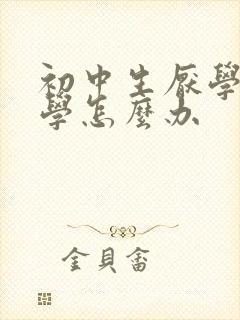 初中生厭學
學怎麼办
金貝畓